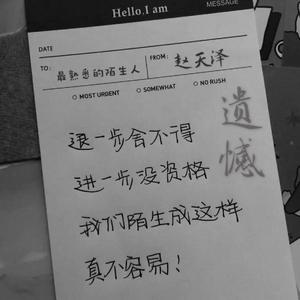 Hello, I am
MESSAGE
DATE
TO: 最熟悉的陌生人 FROM: 赵天泽
MOST URGENT SOMEWHAT NO RUSH
遗憾
退一步舍不得
进一步没资格
我们陌生成这样
真不容易!